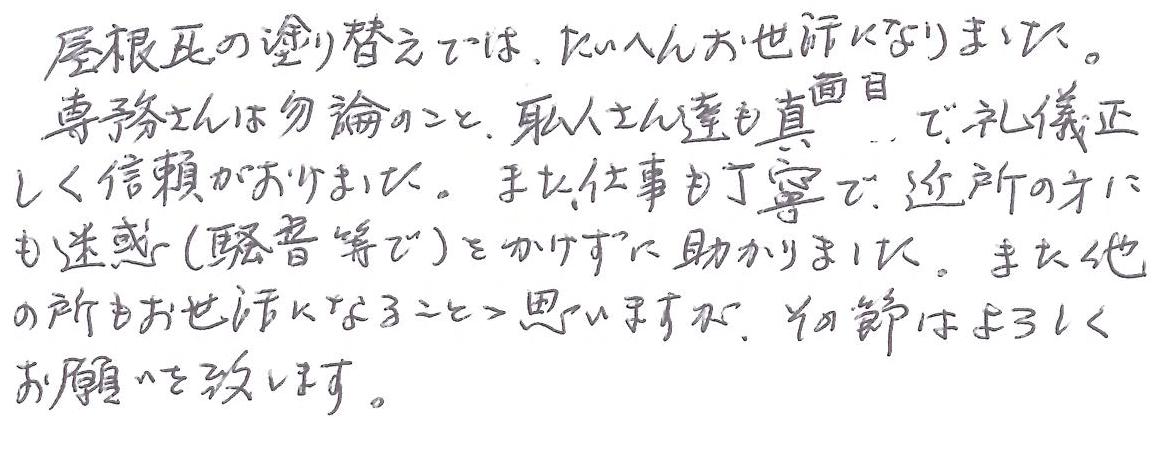 屋根瓦の塗り替えでは、たいへんお世話になりました。
専務さんは勿論のこと、職人さん達も真面目で、礼儀正
しく信頼がおけました。また、仕事も丁寧で、近所の方に
も迷惑(騒音等で)をかけずに助かりました。また他
の所もお世話になることと思いますが、その節はよろしく
お願いを致します。